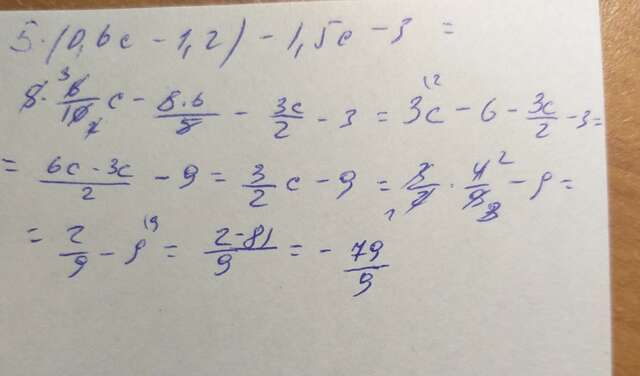 5·(0,6c − 1,2) − 1,5c − 3 =
5· 6/10 c − 5·6/5 − 3c/2 − 3 = 3c − 6 − 3c/2 − 3 =
= 6c − 3c/2 − 9 = 3/2 c − 9 = 3/2 · 4/9 − 9 =
= 2/9 − 9 = 2−81/9 = − 79/9